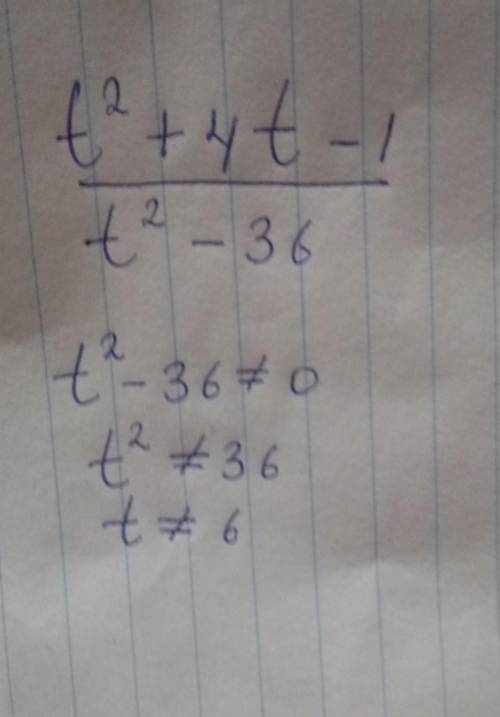 t² + 4t - 1
t² - 36
t² - 36 ≠ 0
t² ≠ 36
t ≠ 6